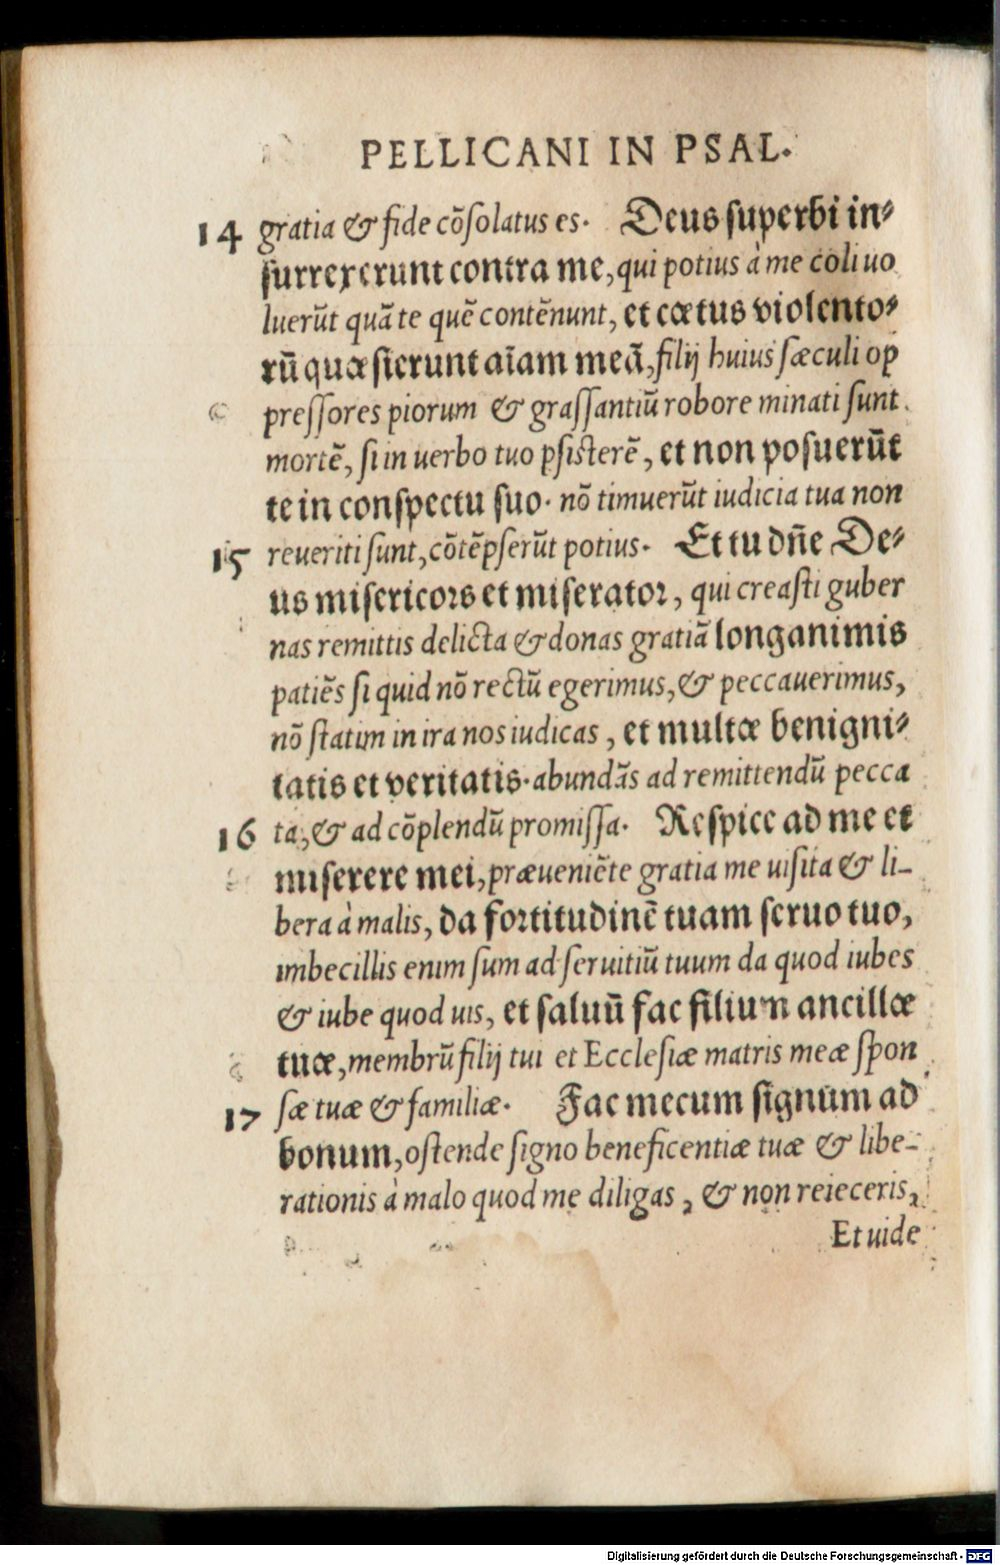 PELLICANI IN PSAL.
14 gratia & fide cõſolatus es. Deus ſuperbi in⸗
ſurrexerunt contra me, qui potius à me coli uo
luerũt quã te quē contēnunt, et cœtus violento⸗
rũ quæſierunt aīam meã, filij huius ſæculi op
preſſores piorum & graſſantiũ robore minati ſunt
mortē, ſi in uerbo tuo pſiſterē, et non poſuerũt
te in conſpectu ſuo. nõ timuerũt iudicia tua non
15 reueriti ſunt, cõtēpſerũt potius. Et tu dñe De⸗
us miſericors et miſerator, qui creaſti guber
nas remittis delicta & donas gratiã longanimis
patiēs ſi quid nõ rectũ egerimus, & peccauerimus,
nõ ſtatim in ira nos iudicas, et multæ benigni⸗
tatis et veritatis. abundãs ad remittendũ pecca
16 ta, & ad cõplendũ promiſſa. Reſpice ad me et
miſerere mei, præueniēte gratia me uiſita & li-
bera à malis, da fortitudinē tuam ſeruo tuo,
imbecillis enim ſum ad ſeruitiũ tuum da quod iubes
& iube quod uis, et ſaluũ fac filium ancillæ
tuæ, membrũ filij tui et Eccleſiæ matris meæ ſpon
17 ſæ tuæ & familiæ. Fac mecum ſignum ad
bonum, oſtende ſigno beneficentiæ tuæ & libe-
rationis à malo quod me diligas, & non reieceris,
Et uide
Digitalisierung gefördert durch die Deutsche Forschungsgemeinschaft - DFG